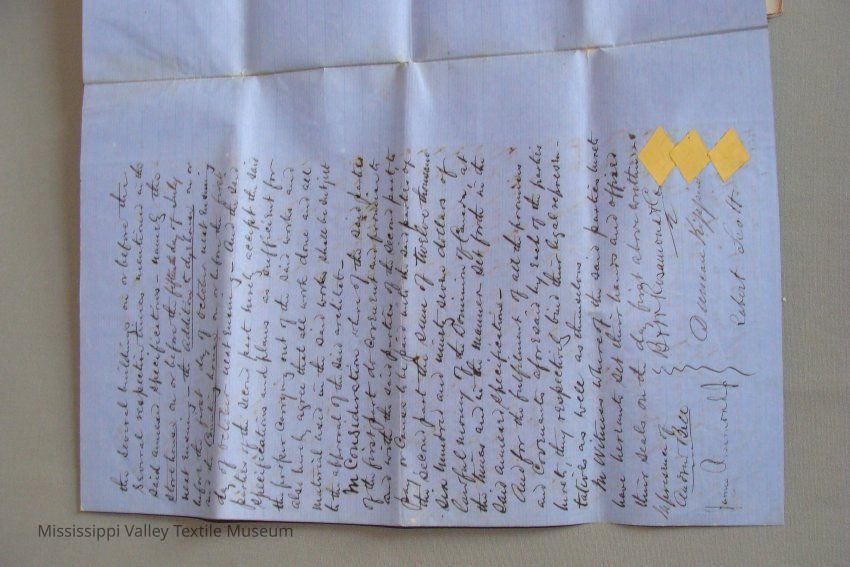 the several buildings on or before the
several respective times mentioned in the
said annexed specifications — namely the
store house on or before the fifteenth day of July
next ensuing — the addition to dyehouse on or
before the first day of October next ensuing
and the on or before the first
day of October next ensuing — And the said
parties of the second part hereby accept the said
specifications and plans as sufficient for
the proper carrying out of the said works and
also hereby agree that all work done and all
material used in the said works shall be subject
to the approval of the said architect.
In Consideration whereof the said parties
of the first part do covenant and agree to
and with the said parties of the second part to
pay or cause to be paid unto the said parties of
the second part the sum of twelve thousand
six hundred and ninety seven dollars of
lawful money of the Dominion of Canada at
the times and in the manner set forth in the
said annexed specifications —
And for the fulfilment of all the promises
and covenants aforesaid by each of the parties
hereto they respectively bind their legal represen-
tatives as well as themselves
In Witness whereof the said parties hereto
have hereunto set their hands and affixed
their seals on the day first above written
In presence of
B & W Rosamond & Co
Duncan
Robert Scott
James
Mississippi Valley Textile Museum